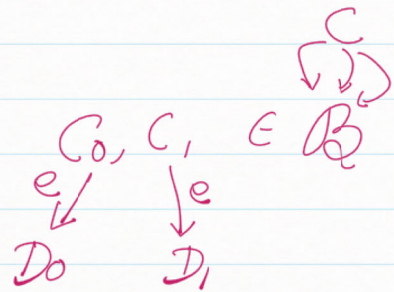 C
C₀, C₁ ∈ B
e e
D₀ D₁